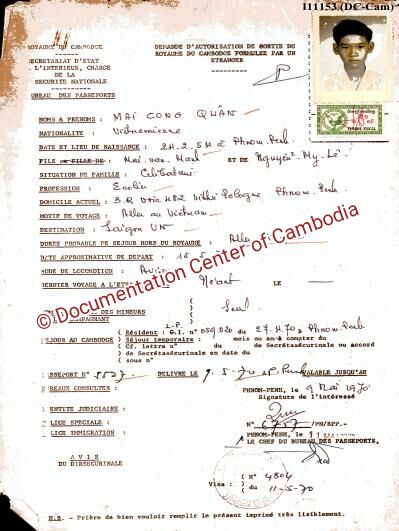 111153 (DC-Cam)
ROYAUME DU CAMBODGE
SECRETARIAT D'ETAT
A L'INTERIEUR, CHARGE
DE LA
SECURITE NATIONALE
BUREAU DES PASSEPORTS
DEMANDE D'AUTORISATION DE SORTIE DU
ROYAUME DU CAMBODGE FORMULEE PAR UN
ETRANGER
TIMBRE FISCAL
NOMS & PRENOMS : MAI CONG QUÂN
NATIONALITE : Vietnamienne
DATE ET LIEU DE NAISSANCE : 24.2.54 à Phnom.Penh
FILS ou FILLE DE : Mai van ET DE Nguyên My Lê
SITUATION DE FAMILLE : Célibataire
PROFESSION : Ecolier
DOMICILE ACTUEL : Phnom.Penh
MOTIF DE VOYAGE : Aller au Vietnam
DESTINATION : Saigon VN
DUREE PROBABLE DE SEJOUR HORS DU ROYAUME : Aller
DATE APPROXIMATIVE DE DEPART : 15.5
MODE DE LOCOMOTION : Avion
DERNIER VOYAGE A L'ETRANGER Néant LE
DES MINEURS
COMPAGNANT ( Seul
I.P.
SEJOUR AU CAMBODGE ( Résident : G.I. n° 059.020 du 27.4.70 à Phnom-Penh
( Séjour temporaire : mois ou an à compter du
( Cf. lettre n° du de Secrétasécurinale ou accord
( de Secrétasécurinale en date du
( sous n°
PASSEPORT N° 5527 DELIVRE LE 9.5.70 VALABLE JUSQU'AU
BUREAUX CONSULTES :
PHNOM-PENH, le 9 Mai 1970
Signature de l'intéressé
IDENTITE JUDICIAIRE :
POLICE SPECIALE :
POLICE IMMIGRATION :
N° 6757 /PN/BPP.-
PHNOM-PENH, le 11 MAI 1970
LE CHEF DU BUREAU DES PASSEPORTS,
AVIS
DU DIRSECURINALE
Visa : ( N° 4804
( du 11-5-70
N.B. - Prière de bien vouloir remplir le présent imprimé très lisiblement.
© Documentation Center of Cambodia